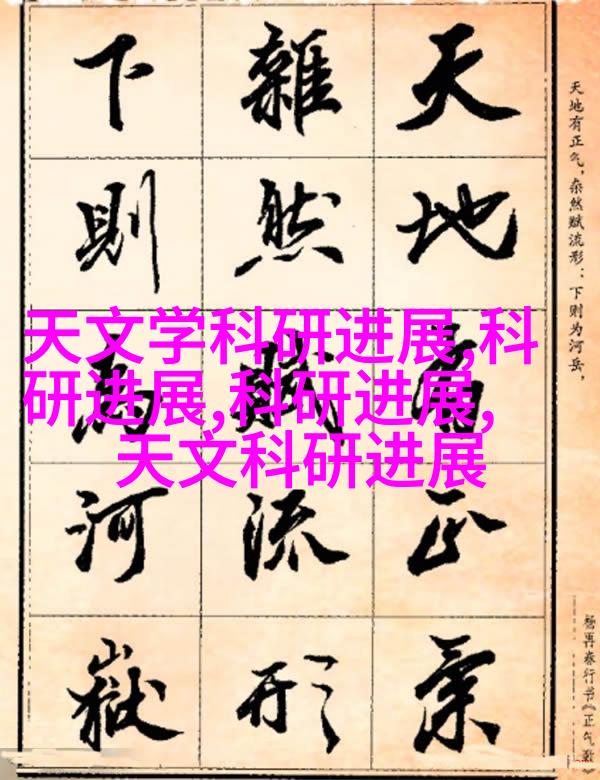 天地有正氣
雜然賦流形
下則為河嶽
天地有正气，杂然赋流形：下则为河岳，
杨再春行书《正气歌》
天文学科研进展,科
研进展,科研进展,
天文科研进展